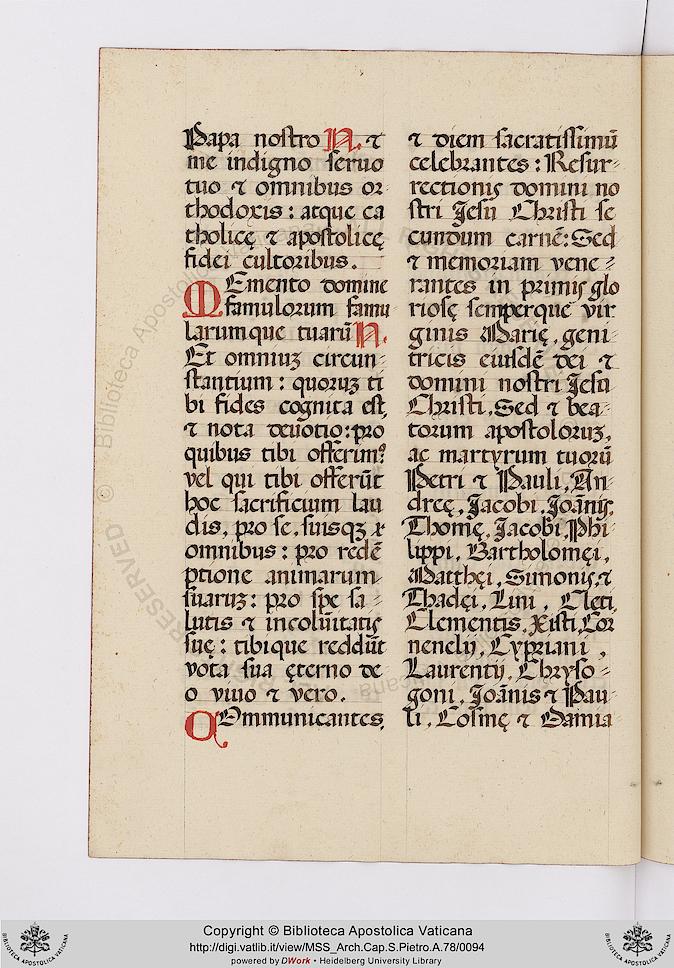 Papa nostro N. ⁊
me indigno seruo
tuo ⁊ omnibus or-
thodoxis: atque ca
tholicę ⁊ apostolicę
fidei cultoribus.
MEmento domine
famulorum famu
larumque tuarū N.
Et omniuꝫ circun-
stantium: quoruꝫ ti
bi fides cognita est,
⁊ nota deuotio: pro
quibus tibi offerimꝰ
vel qui tibi offerūt
hoc sacrificium lau
dis, pro se, suisqꝫ ⁊
omnibus: pro redē
ptione animarum
suaruꝫ: pro spe sa-
lutis ⁊ incolūitatis
suę: tibique reddūt
vota sua ęterno de
o viuo ⁊ vero.
COmmunicantes,
⁊ diem sacratissimū
celebrantes: Resur-
rectionis domini no
stri Jesu Christi se
cundum carnē: Sed
⁊ memoriam vene-
rantes in primis glo
riosę semperque vir
ginis Marię, geni-
tricis eiusdē dei ⁊
domini nostri Jesu
Christi, Sed ⁊ bea-
torum apostoloruꝫ,
ac martyrum tuorū
Petri ⁊ Pauli, An-
dreę, Jacobi, Joānis,
Thomę, Jacobi, Phi
lippi, Bartholomęi,
Matthęi, Simonis, ⁊
Thadęi, Lini, Cleti,
Clementis, Xisti, Cor
nenelij, Cypriani,
Laurentij, Chryso-
goni, Joānis ⁊ Pau-
li, Cosmę ⁊ Damia
© Biblioteca Apostolica Vaticana
RESERVED
Copyright © Biblioteca Apostolica Vaticana
http://digi.vatlib.it/view/MSS_Arch.Cap.S.Pietro.A.78/0094
powered by DWork • Heidelberg University Library
BIBLIOTECA APOSTOLICA VATICANA
BIBLIOTECA APOSTOLICA VATICANA